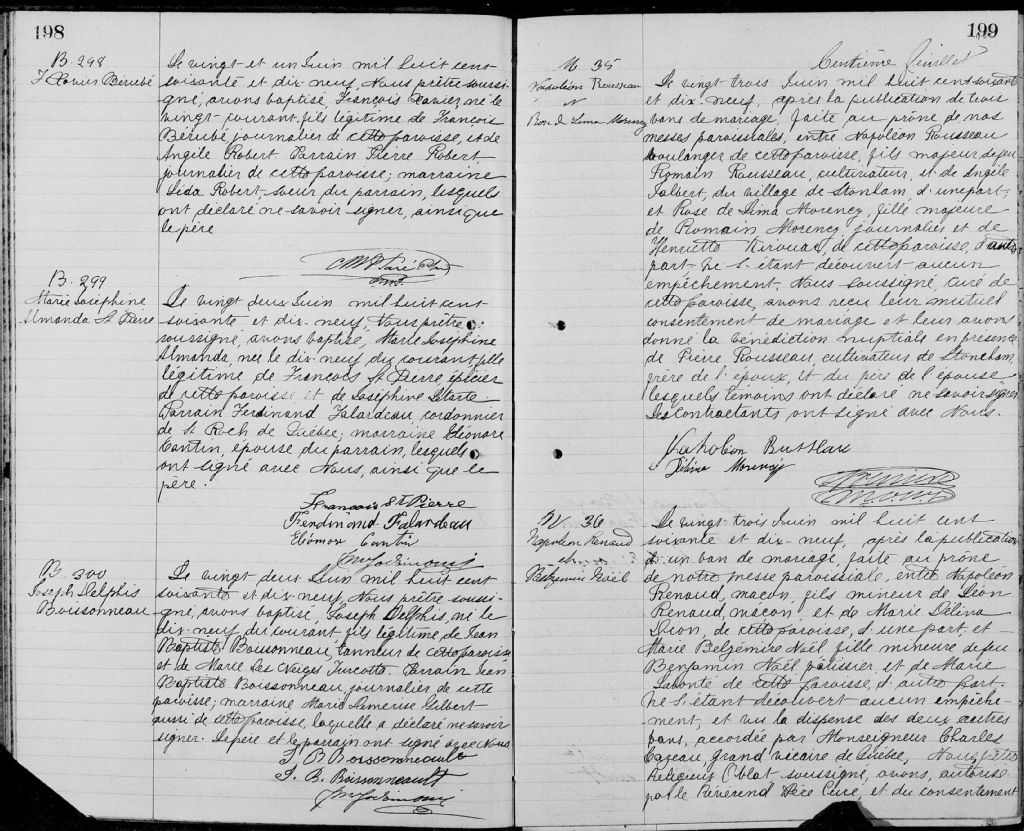 198
B. 298
F. Xavier Bérubé
Le vingt et un Juin mil huit cent
soixante et dix-neuf, Nous prêtre soussi-
gné, avons baptisé, François Xavier, né le
vingt courant, fils légitime de François
Bérubé journalier de cette paroisse, et de
Angèle Robert. Parrain Pierre Robert
journalier de cette paroisse; marraine
Léda Robert, soeur du parrain, lesquels
ont déclaré ne savoir signer, ainsi que
le père
B. 299
Marie Joséphine
Almanda St Pierre
Le vingt deux Juin mil huit cent
soixante et dix-neuf, Nous prêtre
soussigné, avons baptisé, Marie Josephine
Almanda, née le dix-neuf du courant, fille
légitime de François St Pierre, épicier
de cette paroisse et de Joséphine
Parrain Ferdinand Falardeau, cordonnier
de St Roch de Québec; marraine Eléonore
Cantin, épouse du parrain, lesquels
ont signé avec Nous, ainsi que le
père.
François St Pierre
Ferdinand Falardeau
Eléonor Cantin
B. 300
Joseph Delphis
Boissonneau
Le vingt deux Juin mil huit cent
soixante et dix-neuf, Nous prêtre soussi-
gné, avons baptisé, Joseph Delphis, né le
dix-neuf du courant, fils légitime de Jean
Baptiste Boissonneau, tanneur de cette paroisse
et de Marie Des Neiges Turcotte. Parrain Jean
Baptiste Boissonneau, journalier de cette
paroisse; marraine Marie Demerise Gilbert
aussi de cette paroisse, laquelle a déclaré ne savoir
signer. Le père et le parrain ont signé avec Nous
J. B. Boissonneault
J. B. Boissonneault
199
Centième feuillet
M 35
Napoléon Rousseau
&
Rose de Lima Morency
Le vingt trois Juin mil huit cent soixante
et dix-neuf, après la publication de trois
bans de mariage, faite au prône de nos
messes paroissiales, entre Napoléon Rousseau
boulanger de cette paroisse, fils majeur de feu
Romain Rousseau, cultivateur, et de Angèle
Jalbert, du village de Stonham, d'une part,
et Rose de Lima Morency, fille majeure
de Romain Morency journalier et de
Henriette Kirouac, de cette paroisse, d'autre
part. Ne s'étant découvert aucun
empêchement, Nous soussigné, curé de
cette paroisse, avons reçu leur mutuel
consentement de mariage et leur avons
donné la bénédiction nuptiale en présence
de Pierre Rousseau, cultivateur de Stoneham,
frère de l'époux, et du père de l'épouse
lesquels témoins ont déclaré ne savoir signer
Les contractants ont signé avec Nous.
Délina Morency
M 36
Napoléon Renaud
&
Belzémire Noël
Le vingt-trois Juin mil huit cent
soixante et dix-neuf, après la publication
d'un ban de mariage, faite au prône
de notre messe paroissiale, entre Napoléon
Renaud, maçon, fils mineur de Léon
Renaud, maçon, et de Marie Délina
Dion, de cette paroisse, d'une part, et
Marie Belzémire Noël, fille mineure de feu
Benjamin Noël pâtissier et de Marie
Labonté de cette paroisse, d'autre part.
Ne s'étant découvert aucun empêche-
ment, et vu la dispense des deux autres
bans, accordée par Monseigneur Charles
Cazeau grand vicaire de Québec, Nous, prêtre
Religieux Oblat soussigné, avons, autorisé
par le Révérend Père Curé, et du consentement